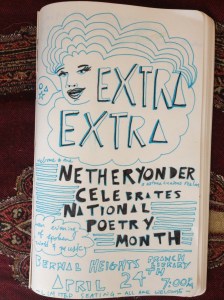 EXTRA
EXTRA
NETHERYONDER
CELEBRATES
NATIONAL
POETRY
MONTH
BERNAL HEIGHTS BRANCH
LIBRARY
APRIL 27TH 7:00PM
LIMITED SEATING - ALL ARE WELCOME -